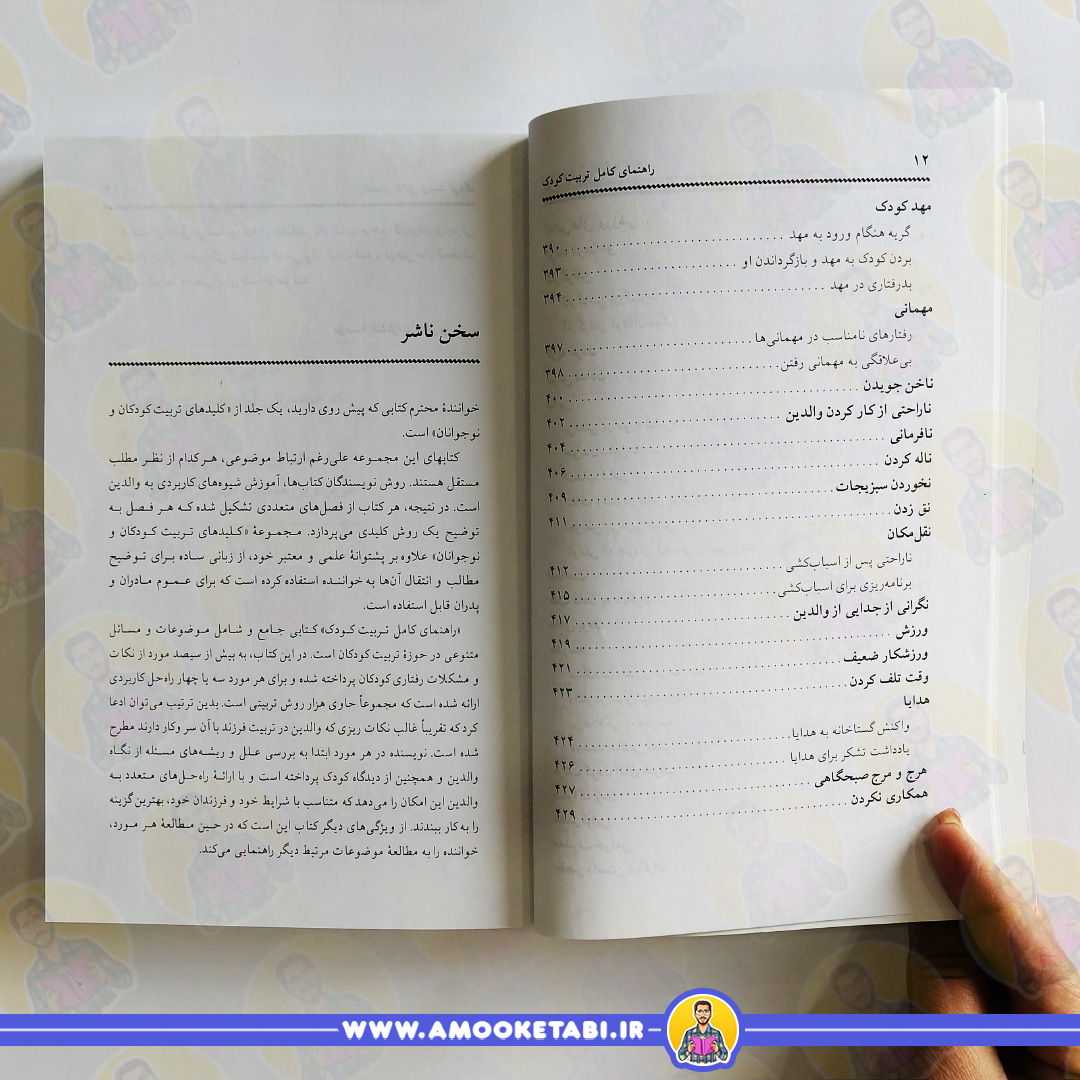 ۱۲
راهنمای کامل تربیت کودک
مهد کودک
گریه هنگام ورود به مهد ........................ ۳۹۰
بردن کودک به مهد و بازگرداندن او ........................ ۳۹۳
بدرفتاری در مهد ........................ ۳۹۴
مهمانی
رفتارهای نامناسب در مهمانی‌ها ........................ ۳۹۷
بی‌علاقگی به مهمانی رفتن ........................ ۳۹۸
ناخن جویدن ........................ ۴۰۰
ناراحتی از کار کردن والدین ........................ ۴۰۲
نافرمانی ........................ ۴۰۴
ناله کردن ........................ ۴۰۶
نخوردن سبزیجات ........................ ۴۰۹
نق زدن ........................ ۴۱۱
نقل‌مکان
ناراحتی پس از اسباب‌کشی ........................ ۴۱۲
برنامه‌ریزی برای اسباب‌کشی ........................ ۴۱۵
نگرانی از جدایی از والدین ........................ ۴۱۷
ورزش ........................ ۴۱۹
ورزشکار ضعیف ........................ ۴۲۱
وقت تلف کردن ........................ ۴۲۳
هدایا
واکنش گستاخانه به هدایا ........................ ۴۲۴
یادداشت تشکر برای هدایا ........................ ۴۲۶
هرج و مرج صبحگاهی ........................ ۴۲۷
همکاری نکردن ........................ ۴۲۹
سخن ناشر
خوانندهٔ محترم کتابی که پیش روی دارید، یک جلد از «کلیدهای تربیت کودکان و
نوجوانان» است.
کتابهای این مجموعه علی‌رغم ارتباط موضوعی، هرکدام از نظر مطلب
مستقل هستند. روش نویسندگان کتاب‌ها، آموزش شیوه‌های کاربردی به والدین
است. در نتیجه، هر کتاب از فصل‌های متعددی تشکیل شده که هر فصل به
توضیح یک روش کلیدی می‌پردازد. مجموعهٔ «کلیدهای تربیت کودکان و
نوجوانان» علاوه بر پشتوانهٔ علمی و معتبر خود، از زبانی ساده برای توضیح
مطالب و انتقال آن‌ها به خواننده استفاده کرده است که برای عموم مادران و
پدران قابل استفاده است.
«راهنمای کامل تربیت کودک» کتابی جامع و شامل موضوعات و مسائل
متنوعی در حوزهٔ تربیت کودکان است. در این کتاب، به بیش از سیصد مورد از نکات
و مشکلات رفتاری کودکان پرداخته شده و برای هر مورد سه یا چهار راه‌حل کاربردی
ارائه شده است که مجموعاً حاوی هزار روش تربیتی است. بدین ترتیب می‌توان ادعا
کرد که تقریباً غالب نکات ریزی که والدین در تربیت فرزند با آن سر وکار دارند مطرح
شده است. نویسنده در هر مورد ابتدا به بررسی علل و ریشه‌های مسئله از نگاه
والدین و همچنین از دیدگاه کودک پرداخته است و با ارائهٔ راه‌حل‌های متعدد به
والدین این امکان را می‌دهد که متناسب با شرایط خود و فرزندان خود، بهترین گزینه
را به کار ببندند. از ویژگی‌های دیگر کتاب این است که در حین مطالعهٔ هر مورد،
خواننده را به مطالعهٔ موضوعات مرتبط دیگر راهنمایی می‌کند.
WWW.AMOOKETABI.IR